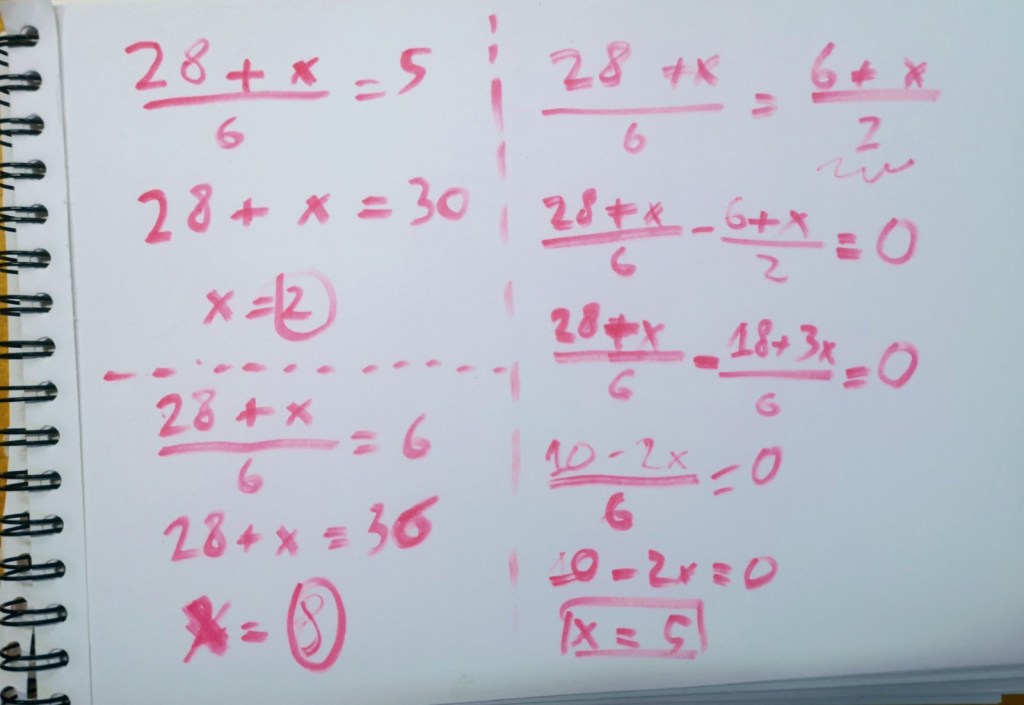 28 + x / 6 = 5
28 + x = 30
x = 2
28 + x / 6 = 6
28 + x = 36
x = 8
28 + x / 6 = 6 + x / 2
28 + x / 6 - 6 + x / 2 = 0
28 + x / 6 - 18 + 3x / 6 = 0
10 - 2x / 6 = 0
10 - 2x = 0
x = 5